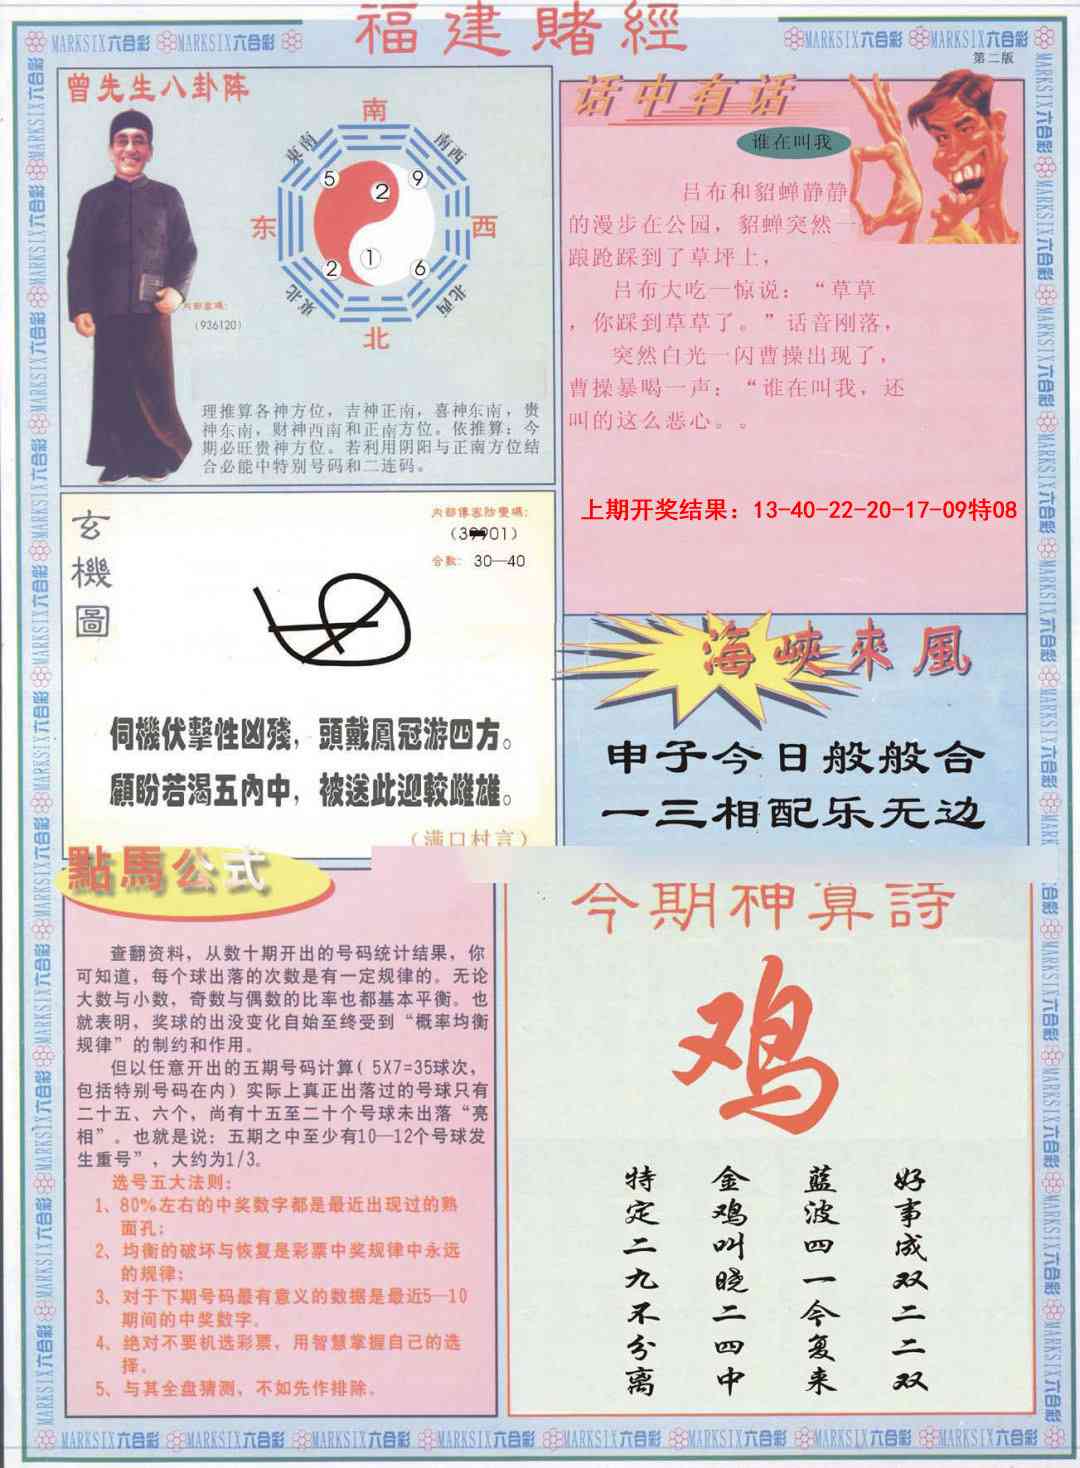 福建賭經
MARKSIX六合彩 MARKSIX六合彩
MARKSIX六合彩 MARKSIX六合彩
第二版
曾先生八卦阵
南
東南
南西
5
2
9
东
西
2
1
6
東北
北西
北
内部密碼:
(936120)
理推算各神方位，吉神正南，喜神东南，贵
神东南，财神西南和正南方位。依推算：今
期必旺贵神方位。若利用阴阳与正南方位结
合必能中特别号码和二连码。
话中有话
谁在叫我
吕布和貂蝉静静
的漫步在公园，貂蝉突然一
踉跄踩到了草坪上，
吕布大吃一惊说：“草草
，你踩到草草了。”话音刚落，
突然白光一闪曹操出现了，
曹操暴喝一声：“谁在叫我，还
叫的这么恶心。。
上期开奖结果：13-40-22-20-17-09特08
玄機圖
内部傳密防變碼:
合数: 30—40
伺機伏擊性凶殘，頭戴鳳冠游四方。
顧盼若渴五内中，被送此迎較雌雄。
(满口村言)
海峽來風
申子今日般般合
一三相配乐无边
點馬公式
查翻资料，从数十期开出的号码统计结果，你
可知道，每个球出落的次数是有一定规律的。无论
大数与小数，奇数与偶数的比率也都基本平衡。也
就表明，奖球的出没变化自始至终受到“概率均衡
规律”的制约和作用。
但以任意开出的五期号码计算( 5X7=35球次，
包括特别号码在内) 实际上真正出落过的号球只有
二十五、六个，尚有十五至二十个号球未出落“亮
相”。也就是说：五期之中至少有10—12个号球发
生重号”，大约为1/3。
选号五大法则:
1、80%左右的中奖数字都是最近出现过的熟
面孔；
2、均衡的破坏与恢复是彩票中奖规律中永远
的规律；
3、对于下期号码最有意义的数据是最近5—10
期间的中奖数字。
4、绝对不要机选彩票，用智慧掌握自己的选
择。
5、与其全盘猜测，不如先作排除。
今期神算詩
鸡
好事成双二二双
蓝波四一今复来
金鸡叫晓二四中
特定二九不分离
MARKSIX六合彩 MARKSIX六合彩 MARKSIX六合彩 MARKSIX六合彩 MARKSIX六合彩 MARKSIX六合彩 MARKSIX六合彩 MARKSIX六合彩